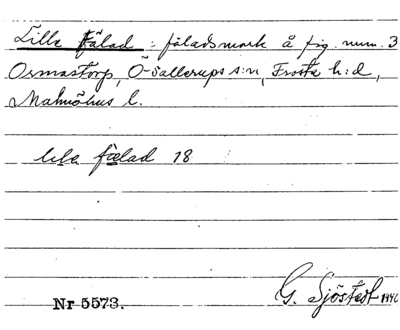 Lille Fälad : fäladsmark å fig. num. 3
Ormastorp, Ö-Sallerups s:n, Frosta h:d,
Malmöhus l.
lila fælad 18
Nr 5573.
G. Sjöstedt 1940